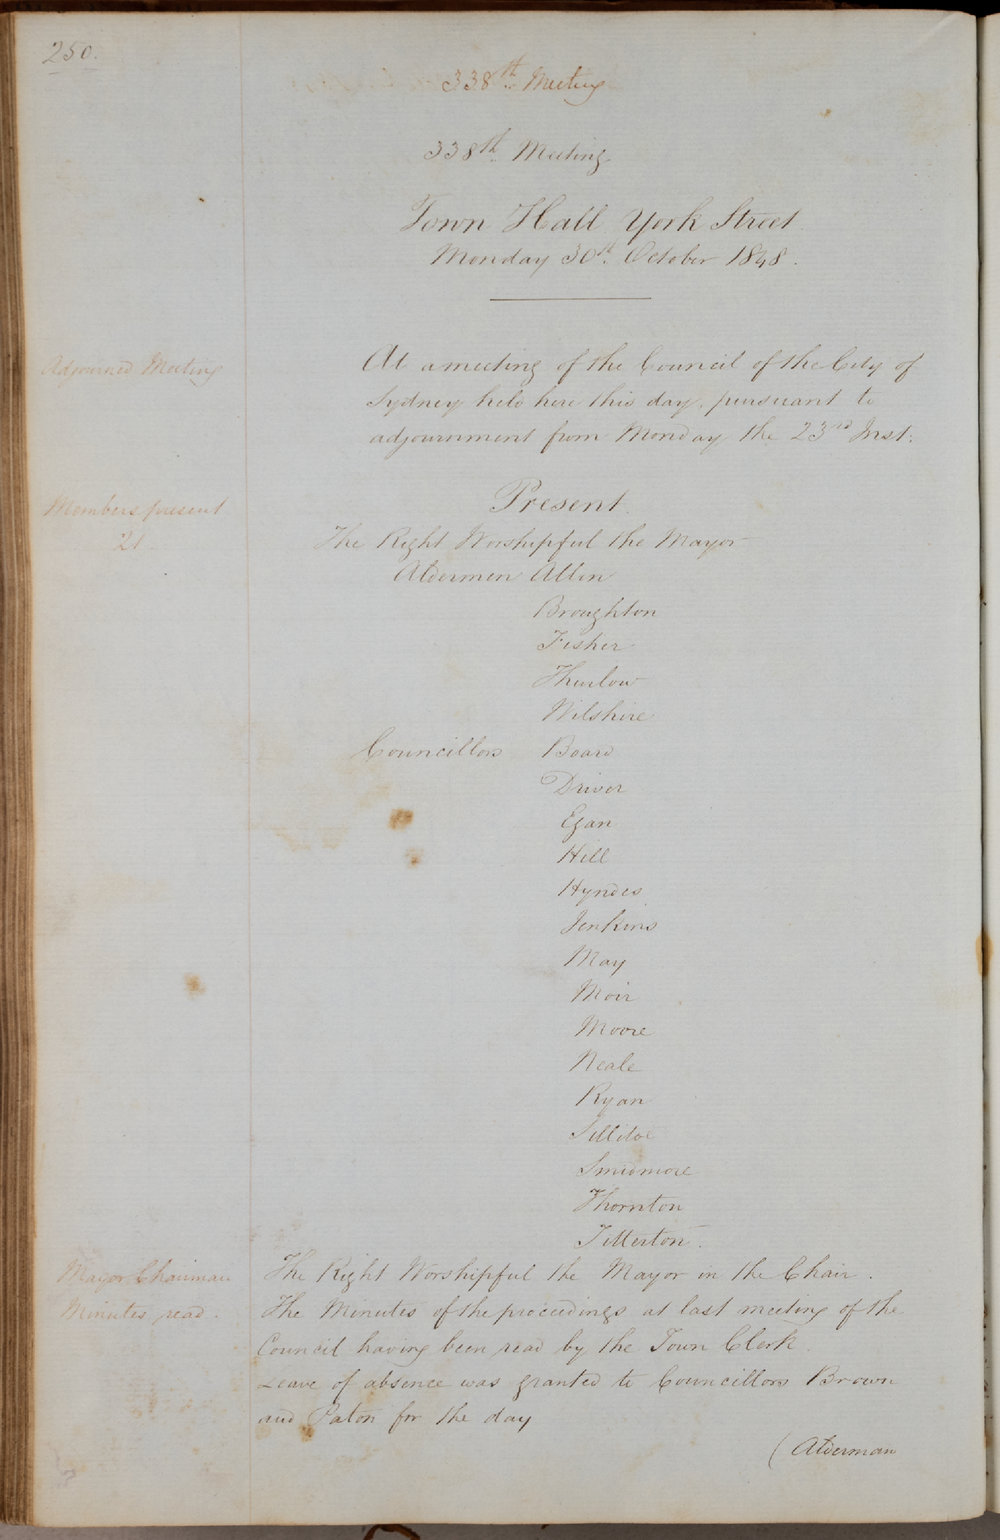 250.
338th Meeting
338th Meeting
Town Hall York Street
Monday 30th October 1848.
Adjourned Meeting
At a meeting of the Council of the City of
Sydney held here this day, pursuant to
adjournment from Monday the 23rd Inst.
Members present
21.
Present
The Right Worshipful the Mayor
Aldermen Allen
Broughton
Fisher
Thurlow
Wilshire
Councillors Board
Driver
Egan
Hill
Hyndes
Jenkins
May
Moir
Moore
Neale
Ryan
Sillitoe
Smidmore
Thornton
Titterton.
Mayor Chairman
The Right Worshipful the Mayor in the Chair.
Minutes read.
The Minutes of the proceedings at last meeting of the
Council having been read by the Town Clerk.
Leave of absence was granted to Councillors Brown
and Paton for the day
(Alderman